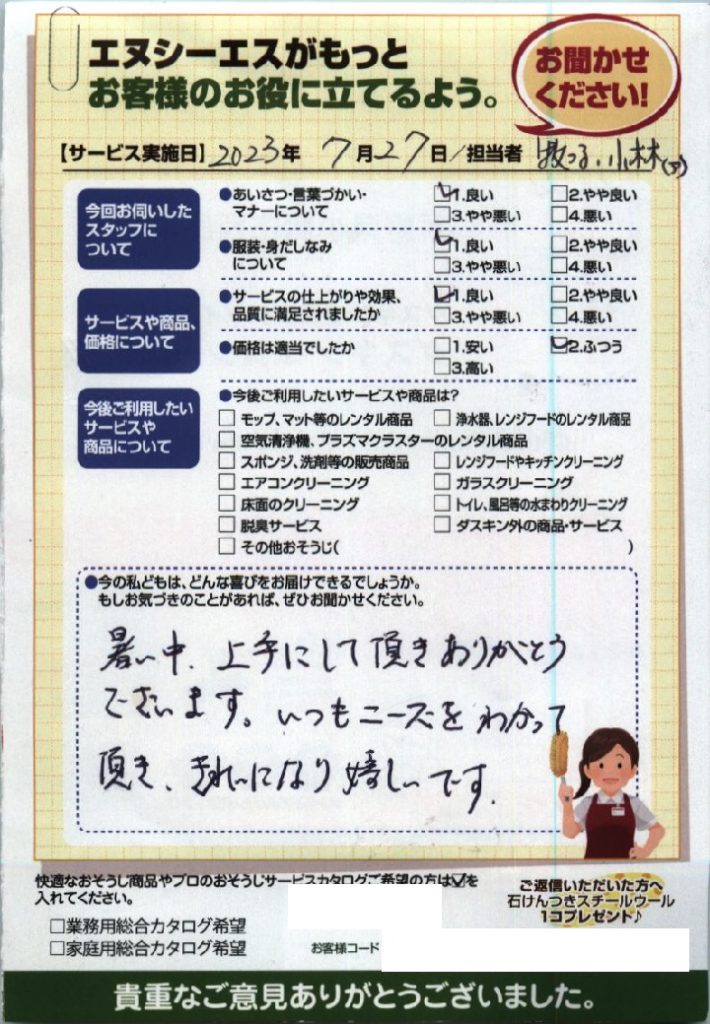 エヌシーエスがもっと
お客様のお役に立てるよう。
お聞かせ
ください!
【サービス実施日】2023年 7月27日/担当者 小林
今回お伺いした
スタッフに
ついて
●あいさつ・言葉づかい・
マナーについて
☑1.良い □2.やや良い
□3.やや悪い □4.悪い
●服装・身だしなみ
について
☑1.良い □2.やや良い
□3.やや悪い □4.悪い
サービスや商品、
価格について
●サービスの仕上がりや効果、
品質に満足されましたか
☑1.良い □2.やや良い
□3.やや悪い □4.悪い
●価格は適当でしたか
□1.安い ☑2.ふつう
□3.高い
今後ご利用したい
サービスや
商品について
●今後ご利用したいサービスや商品は?
□ モップ、マット等のレンタル商品 □ 浄水器、レンジフードのレンタル商品
□ 空気清浄機、プラズマクラスターのレンタル商品
□ スポンジ、洗剤等の販売商品 □ レンジフードやキッチンクリーニング
□ エアコンクリーニング □ ガラスクリーニング
□ 床面のクリーニング □ トイレ、風呂等の水まわりクリーニング
□ 脱臭サービス □ ダスキン外の商品・サービス
□ その他おそうじ( )
●今の私どもは、どんな喜びをお届けできるでしょうか。
もしお気づきのことがあれば、ぜひお聞かせください。
暑い中、上手にして頂きありがとう
ございます。いつもニーズをわかって
頂き、きれいになり嬉しいです.
快適なおそうじ商品やプロのおそうじサービスカタログご希望の方は☑を
入れてください。
□業務用総合カタログ希望
□家庭用総合カタログ希望
お客様コード
ご返信いただいた方へ
石けんつきスチールウール
1コプレゼント♪
貴重なご意見ありがとうございました。